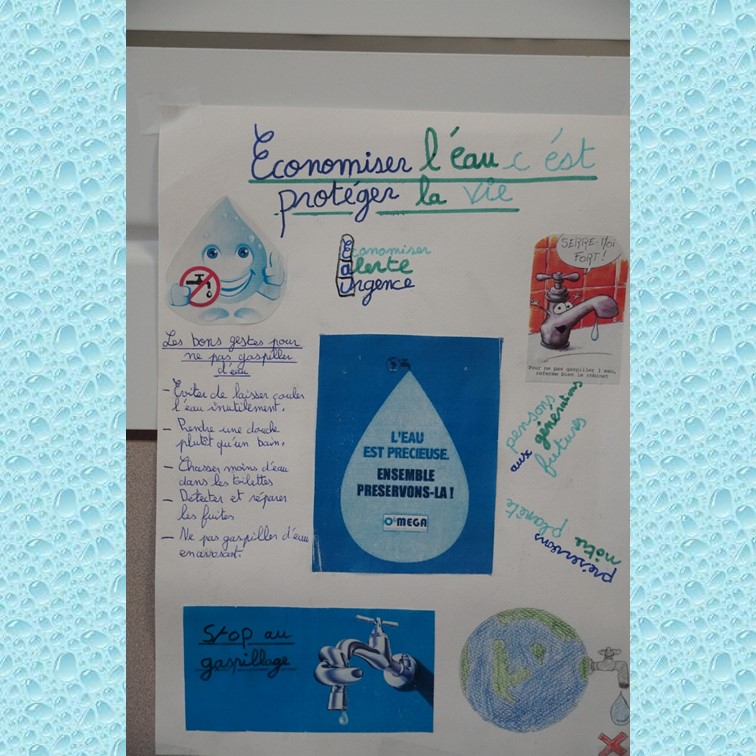 Économiser l'éau c'ést
protéger la vie
economiser
alerte
urgence
SERRE-MOI
FORT !
Pour ne pas gaspiller l'eau,
referme bien le robinet
Les bons gestes pour
ne pas gaspiller
d'eau
- Eviter de laisser couler
l'eau inutilement.
- Prendre une douche
plutôt qu'un bain.
- Chasser moins d'eau
dans les toilettes
- Detecter et réparer
les fuites
- Ne pas gaspiller d'eau
en arrosant.
L'EAU
EST PRECIEUSE.
ENSEMBLE
PRESERVONS-LA !
O'MEGA
pensons
aux générations
futures
préservons
notre planète
Stop au
gaspillage